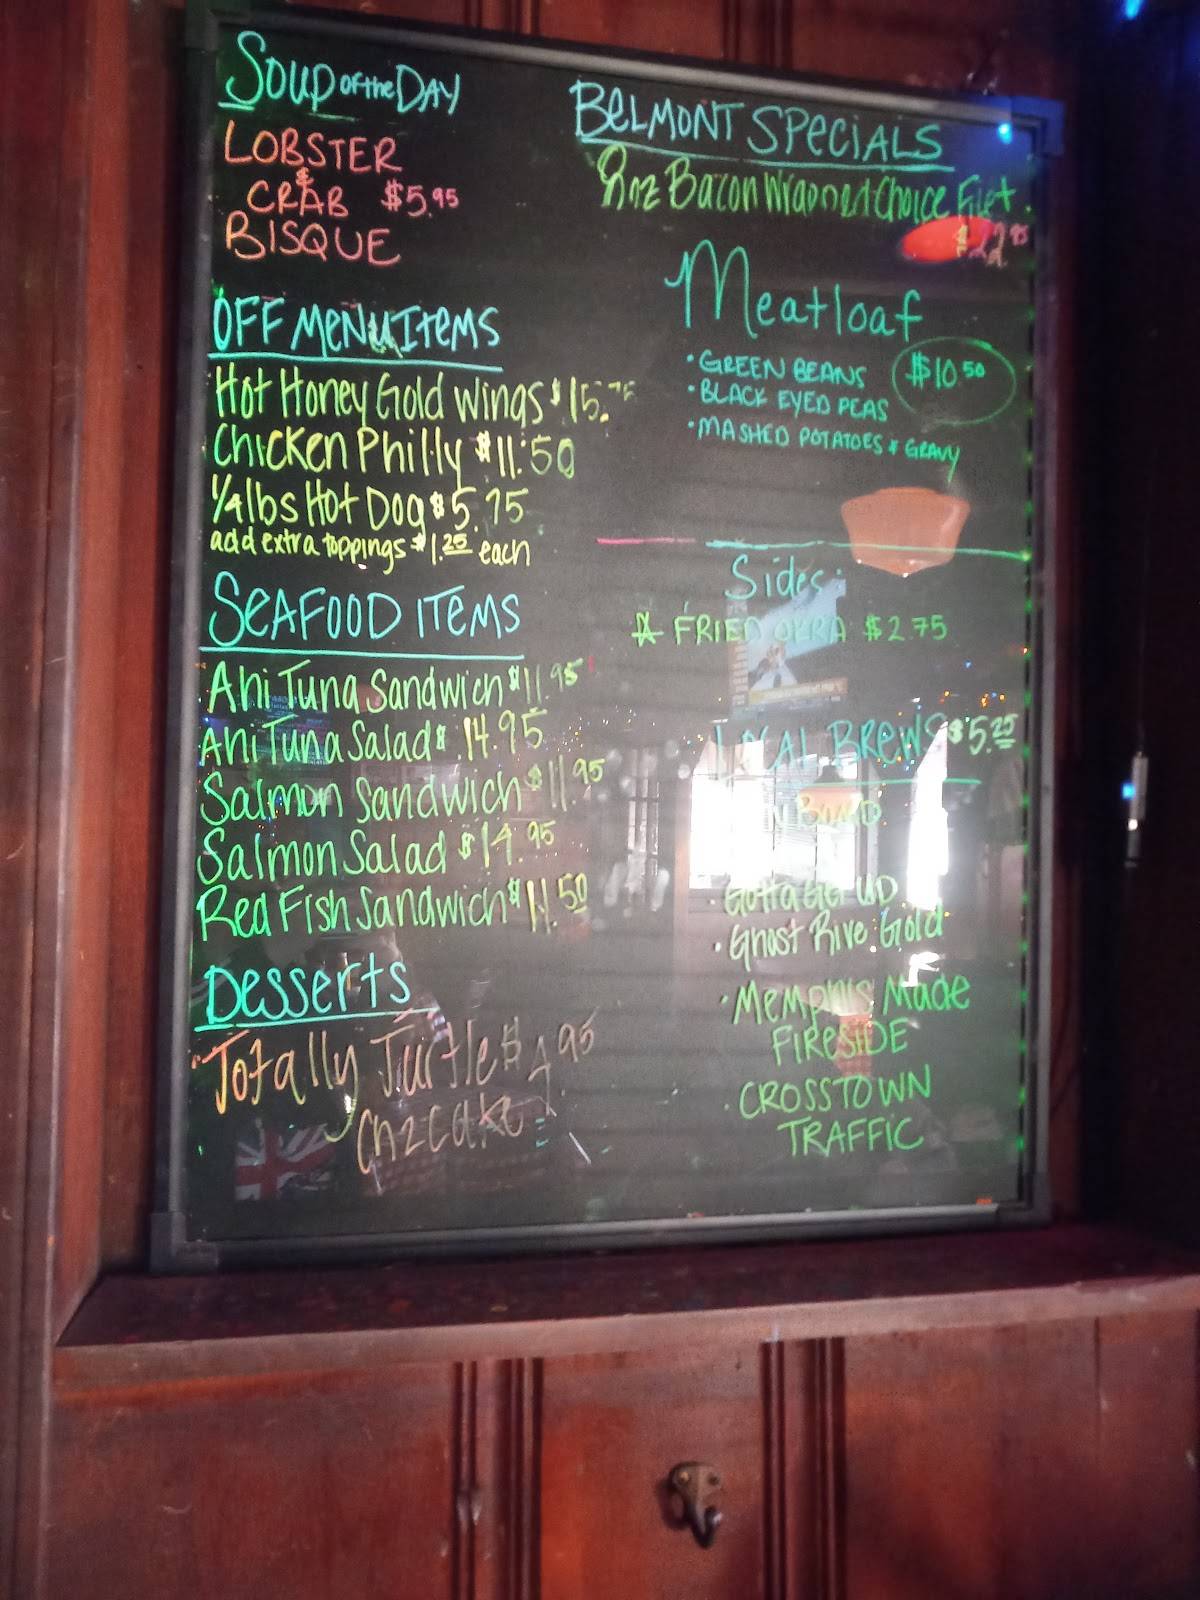 Soup of the Day
LOBSTER
& CRAB $5.95
BISQUE
OFF MENU Items
Hot Honey Gold Wings $15.75
Chicken Philly $11.50
1/4 lbs Hot Dog $5.75
add extra toppings $1.25 each
SEAFOOD ITEMS
Ahi Tuna Sandwich $11.95
Ahi Tuna Salad $14.95
Salmon Sandwich $11.95
Salmon Salad $14.95
Red Fish Sandwich $11.50
Desserts
Totally Turtle $4.95
BELMONT SPECIALS
8oz Bacon Wrapped Choice Filet
$22.95
Meatloaf
• GREEN BEANS $10.50
• BLACK EYED PEAS
• MASHED POTATOES & GRAVY
Sides:
FRIED OKRA $2.75
LOCAL BREWS $5.25
• Gotta Get Up
• Ghost Rive Gold
• Memphis Made
FIRESIDE
• CROSSTOWN
TRAFFIC